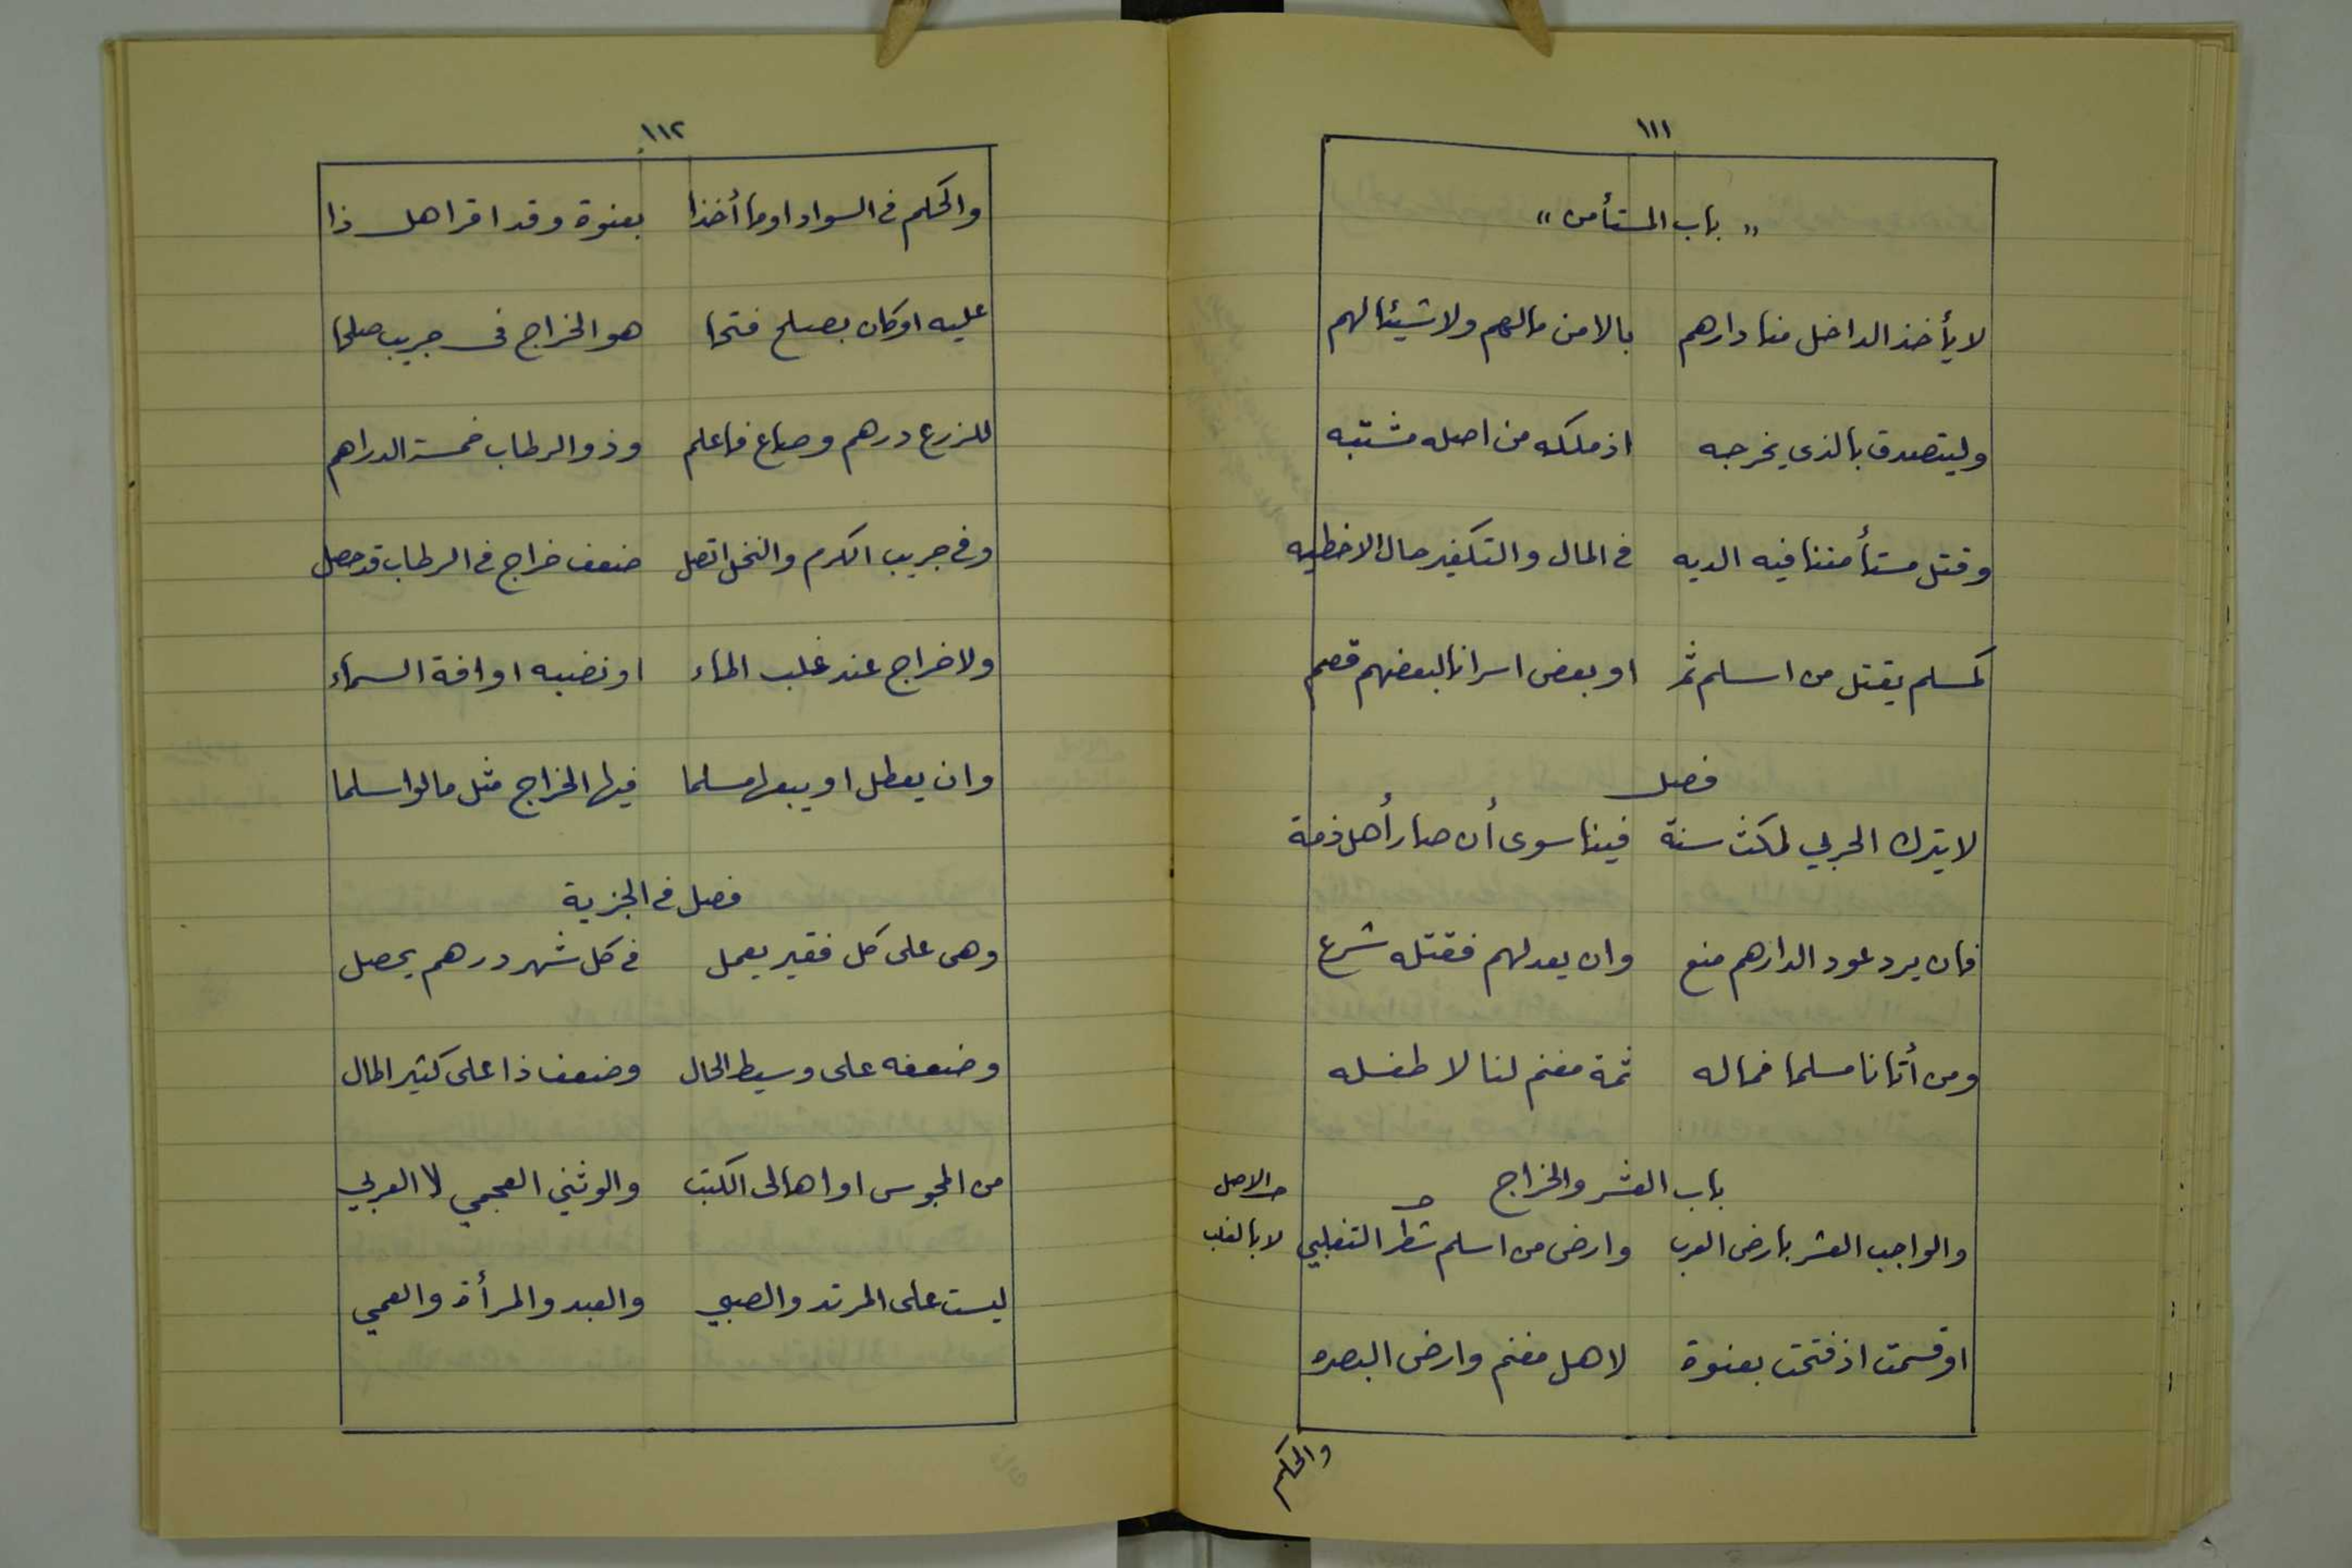 ١١١
" باب المستأمن "
لا يأخذ الداخل منا دارهم بالامن مالهم ولا شيئا لهم
وليتصدق بالذي يخرجه اذ ملكه من اصله مشتبه
وقتل مستأمننا فيه الديه في المال والتكفير حال الاخطيه
كمسلم يقتل من اسلم ثم او بعض اسرانا لبعضهم قصم
فصل
لا يترك الحربي لمكث سنة فينا سوى أن صار أهل ذمة
فان يرد عود الدارهم منع وان يعد لهم فقتله شرع
ومن أتانا مسلما فماله ثمة مغنم لنا لا طفله
باب العشر والخراج
والواجب العشر بارض العرب وارض من اسلم شطر التغلبي
الاصل
لا بالغلب
او قسمت اذ فتحت بعنوة لاهل مغنم وارض البصره
والحكم
١١٢
والحكم في السواد او ما أخذا بعنوة وقد اقر اهل ذا
عليه او كان بصلح فتحا هو الخراج في جريب صلحا
للزرع درهم وصاع فاعلم وذو الرطاب خمسة الدراهم
وفي جريب الكرم والنخل اتصل ضعف خراج في الرطاب قد حصل
ولا خراج عند غلب الماء او نضبه او افة السماء
وان يعطل او يبعها مسلما فيها الخراج مثل ما لو اسلما
فصل في الجزية
وهى على كل فقير يعمل في كل شهر درهم يحصل
وضعفه على وسيط الحال وضعف ذا على كثير المال
من المجوس او اهالى الكتب والوثني العجمي لا العربي
ليست على المرتد والصبي والعبد والمرأة والعمي